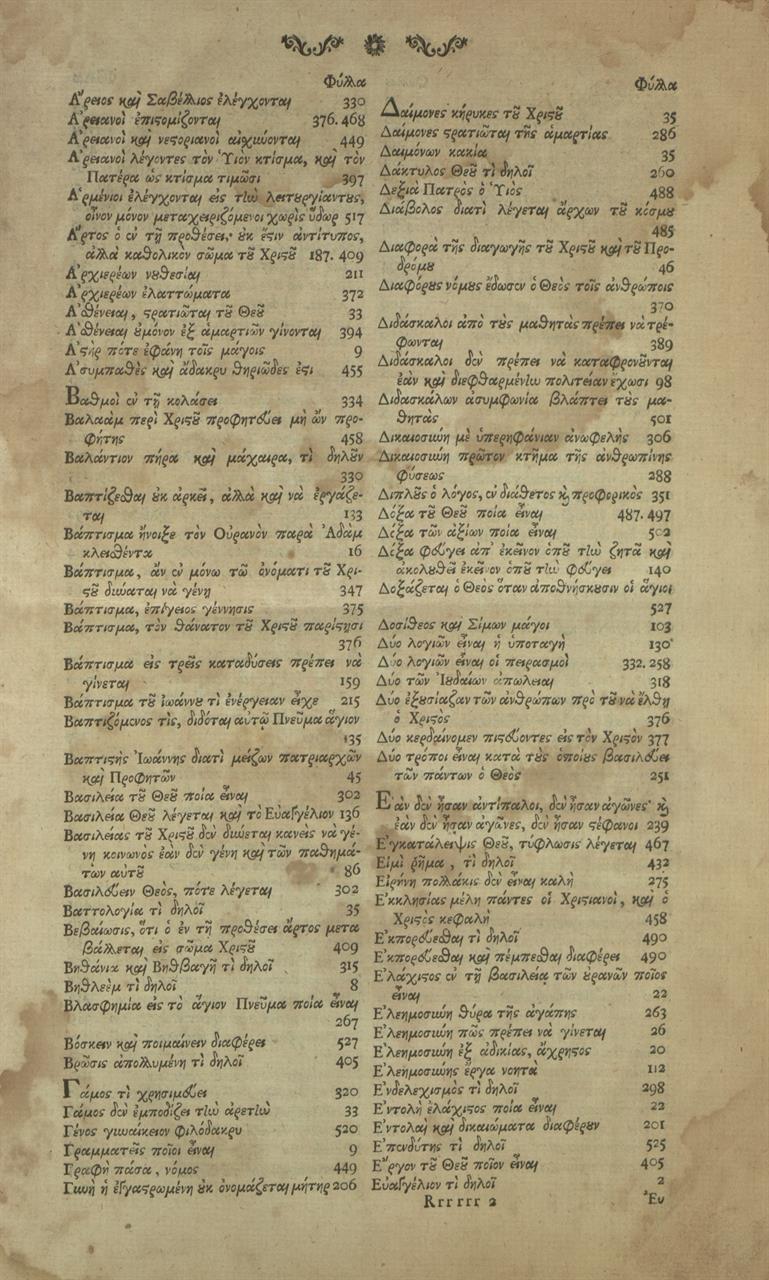 Φύλλα
Ἄρειος καὶ Σαβέλλιος ἐλέγχονται 330
Ἀρειανοὶ ἐπιστομίζονται 376. 468
Ἀρειανοὶ καὶ νεστοριανοὶ αἰχύνονται 449
Ἀρειανοὶ λέγοντες τὸν Ὑιὸν κτίσμα, καὶ τὸν
Πατέρα ὡς κτίσμα τιμῶσι 397
Ἀρμένιοι ἐλέγχονται εἰς τὴν λειτουργίαντους,
οἶνον μόνον μεταχειριζόμενοι χωρὶς ὕδωρ 517
Ἄρτος ὁ ἐν τῇ προθέσει, οὐκ ἔστιν ἀντίτυπος,
ἀλλὰ καθολικὸν σῶμα τοῦ Χριστοῦ 187. 409
Ἀρχιερέων νουθεσίαι 211
Ἀρχιερέων ἐλαττώματα 372
Ἀσθένειαι, στρατιῶται τοῦ Θεοῦ 33
Ἀσθένειαι οὐμόνον ἐξ ἁμαρτιῶν γίνονται 394
Ἀστὴρ πότε ἐφάνη τοῖς μάγοις 9
Ἀσυμπαθὲς καὶ ἄδακρυ θηριῶδες ἐστι 455
Βαθμοὶ ἐν τῇ κολάσει 334
Βαλαὰμ περὶ Χριστοῦ προφητεύει μὴ ὢν προ-
φήτης 458
Βαλάντιον πήρα καὶ μάχαιρα, τί δηλοῦν
330
Βαπτίζεσθαι οὐκ ἀρκεῖ, ἀλλὰ καὶ νὰ ἐργάζε-
ται 133
Βάπτισμα ἤνοιξε τὸν Οὐρανὸν παρὰ Ἀδάμ
κλεισθέντα 16
Βάπτισμα, ἂν ἐν μόνω τῶ ὀνόματι τοῦ Χρι-
στοῦ δύναται νὰ γένη 347
Βάπτισμα, ἐπίγειος γέννησις 375
Βάπτισμα, τὸν θάνατον τοῦ Χριστοῦ παρίστησι
376
Βάπτισμα εἰς τρεῖς καταδύσεις πρέπει νὰ
γίνεται 159
Βάπτισμα τοῦ Ἰωάννου τί ἐνέργειαν εἶχε 215
Βαπτιζόμενος τὶς, δίδοται αὐτῷ Πνεῦμα ἅγιον
135
Βαπτιστὴς Ἰωάννης διατί μείζων πατριαρχῶν
καὶ Προφητῶν 45
Βασιλεία τοῦ Θεοῦ ποία εἶναι 302
Βασιλεία Θεοῦ λέγεται καὶ τὸ Εὐαγγέλιον 136
Βασιλείας τοῦ Χριστοῦ δὲν δύνεται κανεὶς νὰ γέ-
νη κοινωνὸς ἐὰν δὲν γένη καὶ τῶν παθημά-
των αὐτοῦ 86
Βασιλεύειν Θεὸς, πότε λέγεται 302
Βαττολογία τί δηλοῖ 35
Βεβαίωσις, ὅτι ὁ ἐν τῇ προθέσει ἄρτος μετα
βάλλεται εἰς σῶμα Χριστοῦ 409
Βηθανία καὶ Βηθβαγῆ τί δηλοῖ 315
Βηθλεὲμ τί δηλοῖ 8
Βλασφημία εἰς τὸ ἅγιον Πνεῦμα ποία εἶναι
267
Βόσκειν καὶ ποιμαίνειν διαφέρει 527
Βρῶσις ἀπολλυμένη τί δηλοῖ 405
Γάμος τί χρησιμεύει 320
Γάμος δὲν ἐμποδίζει τὴν ἀρετὴν 33
Γένος γυναίκειον φιλόδακρυ 520
Γραμματεῖς ποῖοι εἶναι 9
Γραφὴ πᾶσα, νόμος 449
Γυνὴ ἡ ἐγγαστρωμένη οὐκ ὀνομάζεται μήτηρ 206
Φύλλα
Δαίμονες κήρυκες τοῦ Χριστοῦ 35
Δαίμονες στρατιῶται τῆς ἁμαρτίας 286
Δαιμόνων κακία 35
Δάκτυλος Θεοῦ τί δηλοῖ 260
Δεξιὰ Πατρὸς ὁ Ὑιὸς 488
Διάβολος διατί λέγεται ἄρχων τοῦ κόσμου
485
Διαφορὰ τῆς διαγωγῆς τοῦ Χριστοῦ καὶ τοῦ Προ-
δρόμου 46
Διαφόρους νόμους ἔδωσεν ὁ Θεὸς τοῖς ἀνθρώποις
370
Διδάσκαλοι ἀπὸ τοὺς μαθητὰς πρέπει νὰ τρέ-
φωνται 389
Διδάσκαλοι δὲν πρέπει νὰ καταφρονοῦνται
ἐὰν καὶ διεφθαρμένην πολιτείαν ἔχωσι 98
Διδασκάλων ἀσυμφωνία βλάπτει τοὺς μα-
θητὰς 501
Δικαιοσύνη μὲ ὑπερηφάνιαν ἀνωφελὴς 306
Δικαιοσύνη πρῶτον κτῆμα τῆς ἀνθρωπίνης
φύσεως 288
Διπλοῦς ὁ λόγος, ἐνδιάθετος καὶ προφορικὸς 351
Δόξα τοῦ Θεοῦ ποία εἶναι 487. 497
Δόξα τῶν ἀξίων ποία εἶναι 502
Δόξα φεύγει ἀπ' ἐκεῖνον ὁποῦ τὴν ζητᾶ καὶ
ἀκολουθεῖ ἐκεῖνον ὁποῦ τὴν φεύγει 140
Δοξάζεται ὁ Θεὸς ὅταν ἀποθνήσκουσιν οἱ ἅγιοι
527
Δοσίθεος καὶ Σίμων μάγοι 103
Δύο λογιῶν εἶναι ἡ ὑποταγὴ 130
Δύο λογιῶν εἶναι οἱ πειρασμοὶ 332. 258
Δύο τῶν Ἰουδαίων ἀπώλειαι 318
Δύο ἐξουσίαζαν τῶν ἀνθρώπων πρὸ τοῦ νὰ ἔλθη
ὁ Χριστὸς 376
Δύο κερδαίνομεν πιστεύοντες εἰς τὸν Χριστὸν 377
Δύο τρόποι εἶναι κατὰ τοὺς ὁποίους βασιλεύει
τῶν πάντων ὁ Θεὸς 251
Ἐὰν δὲν ἦσαν ἀντίπαλοι, δὲν ἦσαν ἀγῶνες· καὶ
ἐὰν δὲν ἦσαν ἀγῶνες, δὲν ἦσαν στέφανοι 239
Ἐγκατάλειψις Θεοῦ, τύφλωσις λέγεται 467
Εἰμὶ ῥῆμα, τί δηλοῖ 432
Εἰρήνη πολλάκις δὲν εἶναι καλὴ 275
Ἐκκλησίας μέλη πάντες οἱ Χριστιανοὶ, καὶ ὁ
Χριστὸς κεφαλὴ 458
Ἐκπορεύεσθαι τί δηλοῖ 490
Ἐκπορεύεσθαι καὶ πέμπεσθαι διαφέρει 490
Ἐλάχιστος ἐν τῇ βασιλεία τῶν οὐρανῶν ποῖος
εἶναι 22
Ἐλεημοσύνη θύρα τῆς ἀγάπης 263
Ἐλεημοσύνη πῶς πρέπει νὰ γίνεται 26
Ἐλεημοσύνη ἐξ ἀδικίας, ἄχρηστος 20
Ἐλεημοσύνης ἔργα νοητὰ 112
Ἐνδελεχισμὸς τί δηλοῖ 298
Ἐντολὴ ἐλάχιστος ποία εἶναι 22
Ἐντολαὶ καὶ δικαιώματα διαφέρουν 201
Ἐπενδύτης τί δηλοῖ 525
Ἔργον τοῦ Θεοῦ ποῖον εἶναι 405
Εὐαγγέλιον τί δηλοῖ 2
Rrrrrr 2 Ἐν